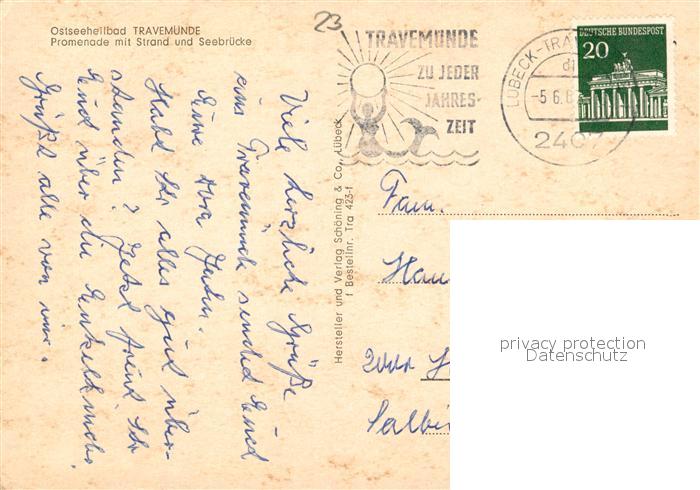 Ostseeheilbad TRAVEMÜNDE
Promenade mit Strand und Seebrücke
23
TRAVEMÜNDE
ZU JEDER
JAHRES-
ZEIT
LÜBECK-TRA
-5.6.6
2407
DEUTSCHE BUNDESPOST
20
Viele herzliche Grüße
aus Travemünde sendet Euch
Eure
Habt Ihr alles gut über-
standen? Jetzt freut Ihr
Euch über die
Grüßt alle von mir.
Hersteller und Verlag Schöning & Co., Lübeck
f Bestellnr. Tra 423-f
Fam.
Hau
privacy protection
Datenschutz